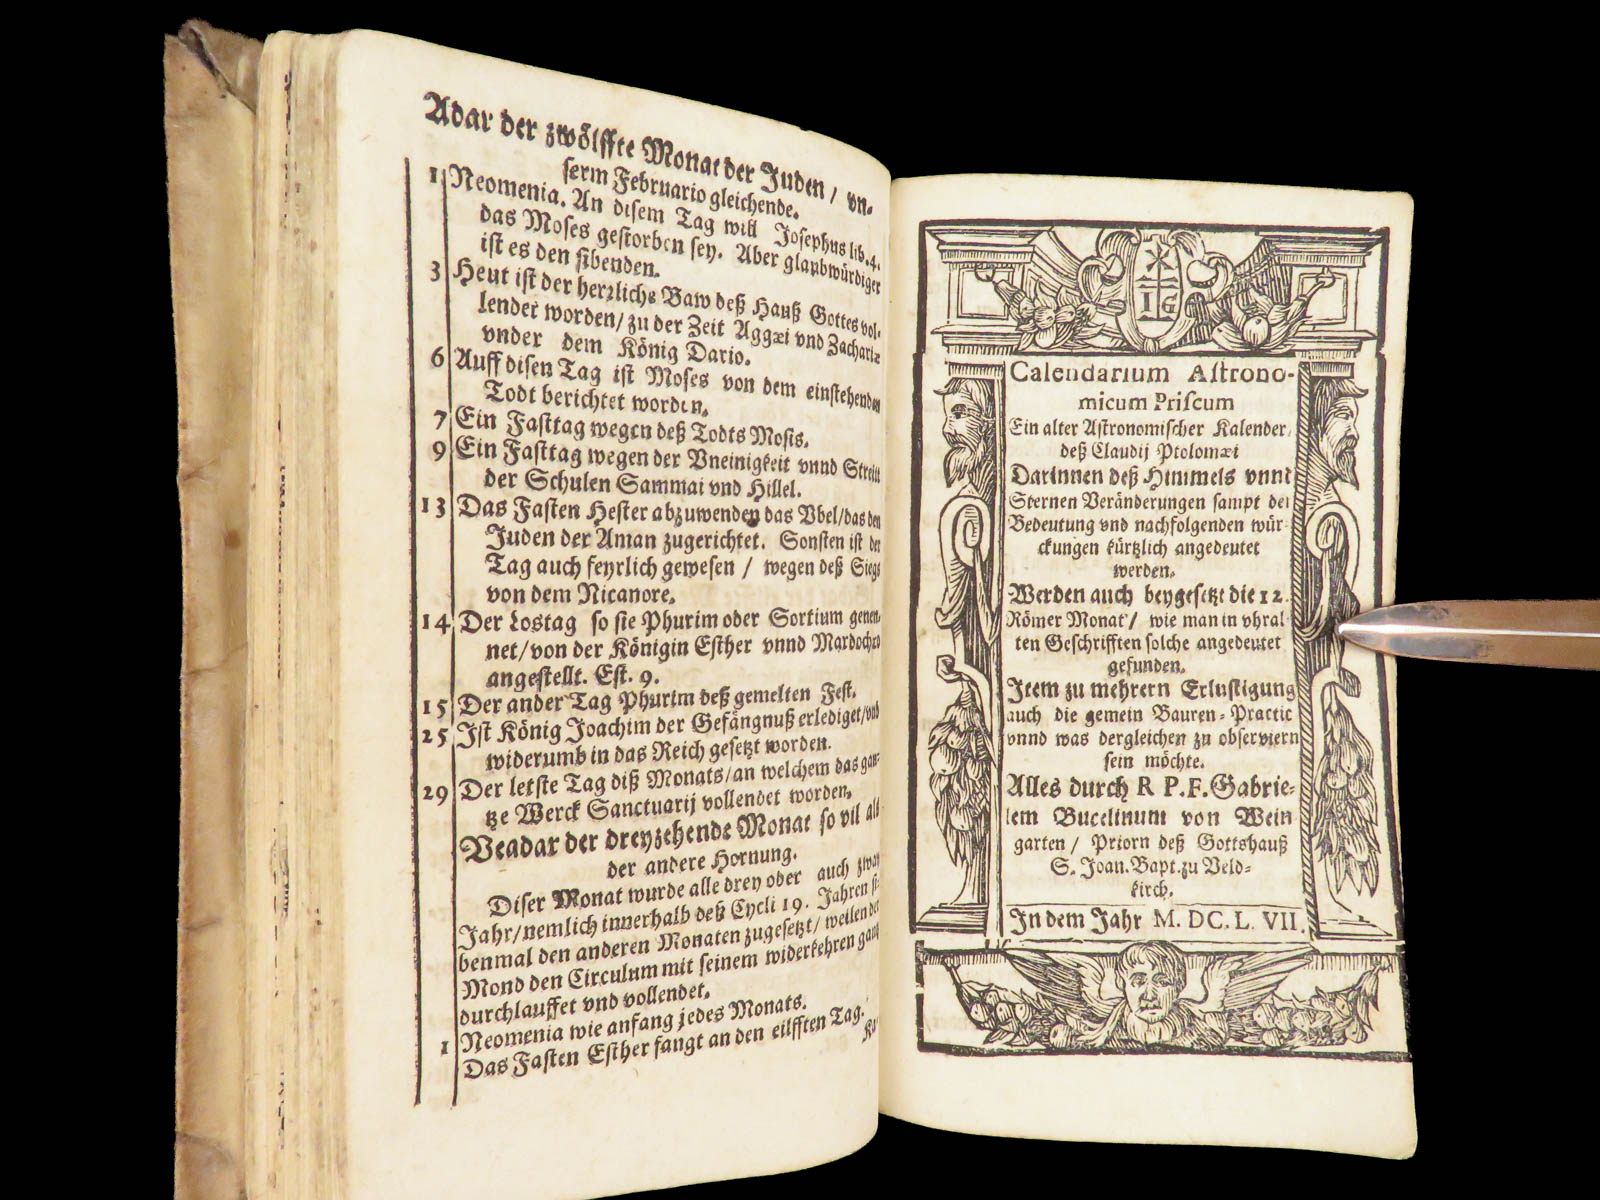 Adar der zwölffte Monat der Juden / vn-
serm Februario gleichende.
1 Neomenia. An disem Tag will Josephus lib. 4.
das Moses gestorben sey. Aber glaubwürdiger
ist es den sibenden.
3 Heut ist der herzliche Baw deß Hauß Gottes vol-
lendet worden / zu der Zeit Aggæi vnd Zachariæ
vnder dem König Dario.
6 Auff disen Tag ist Moses von dem einstehenden
Todt berichtet worden.
7 Ein Fasttag wegen deß Todts Mosis.
9 Ein Fasttag wegen der Vneinigkeit vnnd Streitt
der Schulen Sammai vnd Hillel.
13 Das Fasten Hester abzuwenden das Vbel / das den
Juden der Aman zugerichtet. Sonsten ist der
Tag auch feyrlich gewesen / wegen deß Siegs
von dem Nicanore.
14 Der Lostag so sie Phurim oder Sortium genen-
net / von der Königin Esther vnnd Mardochæo
angestellt. Est. 9.
15 Der ander Tag Phurim deß gemelten Fest.
25 Ist König Joachim der Gefängnuß erlediget / vnd
widerumb in das Reich gesetzt worden.
29 Der letste Tag diß Monats / an welchem das gan-
tze Werck Sanctuarij vollendet worden.
Veadar der dreyzehende Monat so vil als
der andere Hornung.
Diser Monat wurde alle drey oder auch zway
Jahr / nemlich innerhalb deß Cycli 19. Jahren si-
benmal den anderen Monaten zugesetzt / weilen der
Mond den Circulum mit seinem widerkehren gantz
durchlauffet vnd vollendet.
1 Neomenia wie anfang jedes Monats.
Das Fasten Esther fangt an den eilfften Tag.
IG
Calendarium Astrono-
micum Priscum
Ein alter Astronomischer Kalender
deß Claudij Ptolomæi
Darinnen deß Himmels vnnd
Sternen Veränderungen sampt der
Bedeutung vnd nachfolgenden wür-
ckungen kürtzlich angedeutet
werden.
Werden auch beygesetzt die 12.
Römer Monat / wie man in vhral-
ten Geschrifften solche angedeutet
gefunden.
Item zu mehrern Erlustigung
auch die gemein Bauren-Practic
vnnd was dergleichen zu observiern
sein möchte.
Alles durch R P. F. Gabrie-
lem Bucelinum von Wein
garten / Priorn deß Gottshauß
S. Joan. Bapt. zu Veld-
kirch.
In dem Jahr M. DC. L. VII.